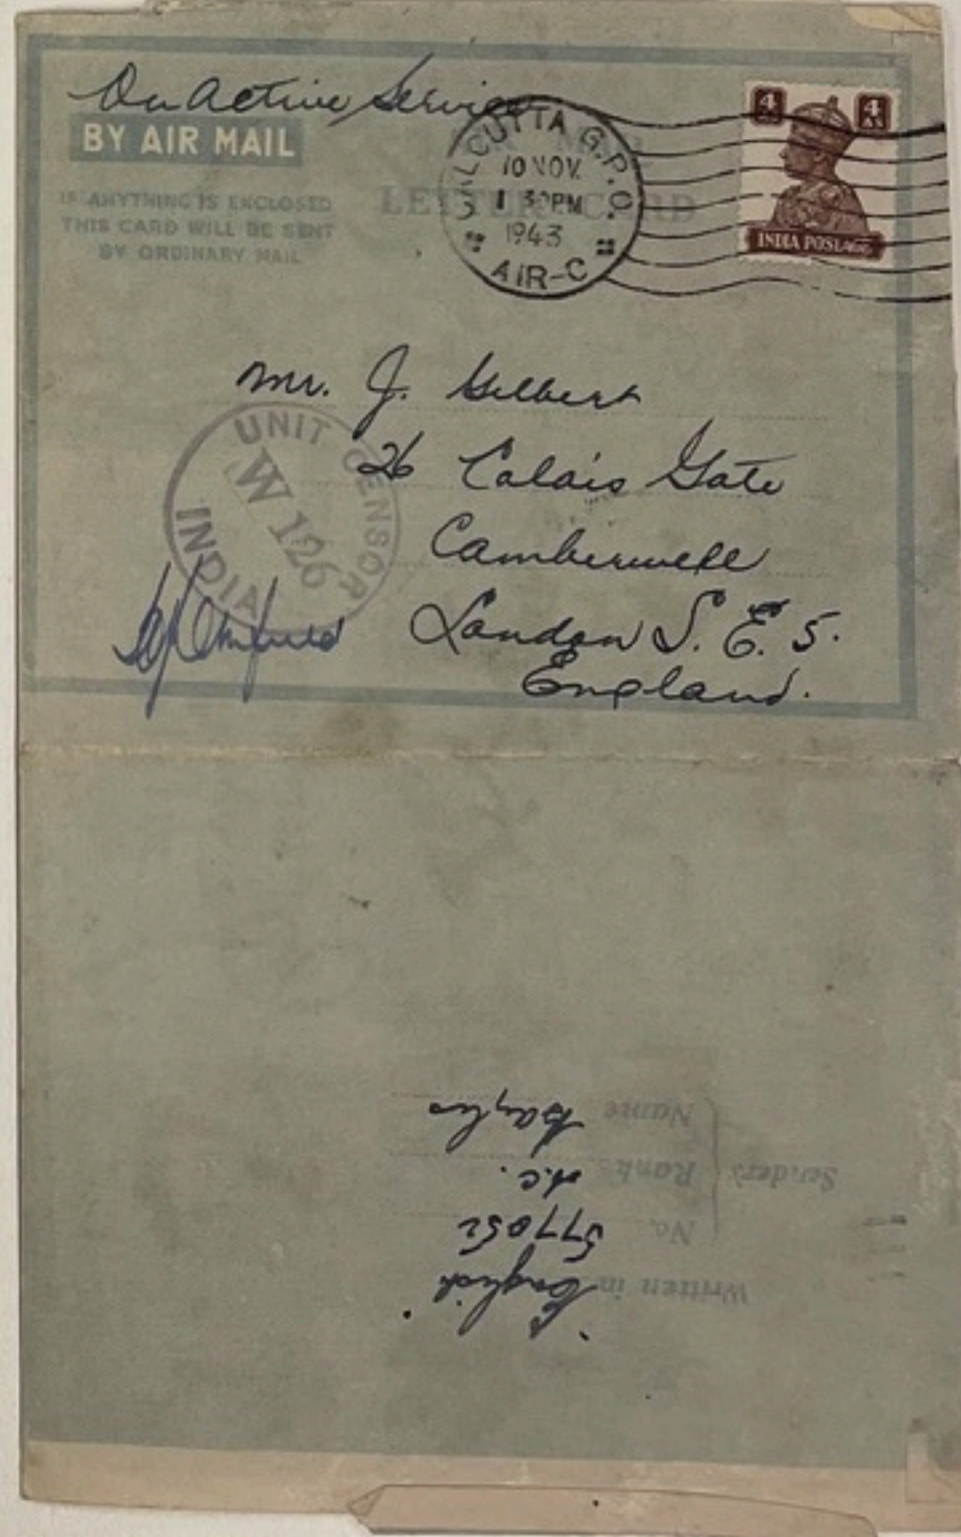 On Active Service
BY AIR MAIL
IF ANYTHING IS ENCLOSED
THIS CARD WILL BE SENT
BY ORDINARY MAIL
LETTER CARD
CALCUTTA G.P.O.
10 NOV.
1 30PM
1943
AIR-C
4 As 4 As
INDIA POSTAGE
Mr. J. Gilbert
26 Calais Gate
Camberwell
London S. E. 5.
England.
UNIT CENSOR
W 126
INDIA
Written in "English"
Sender's
No. 577052
Rank A.C.
Name